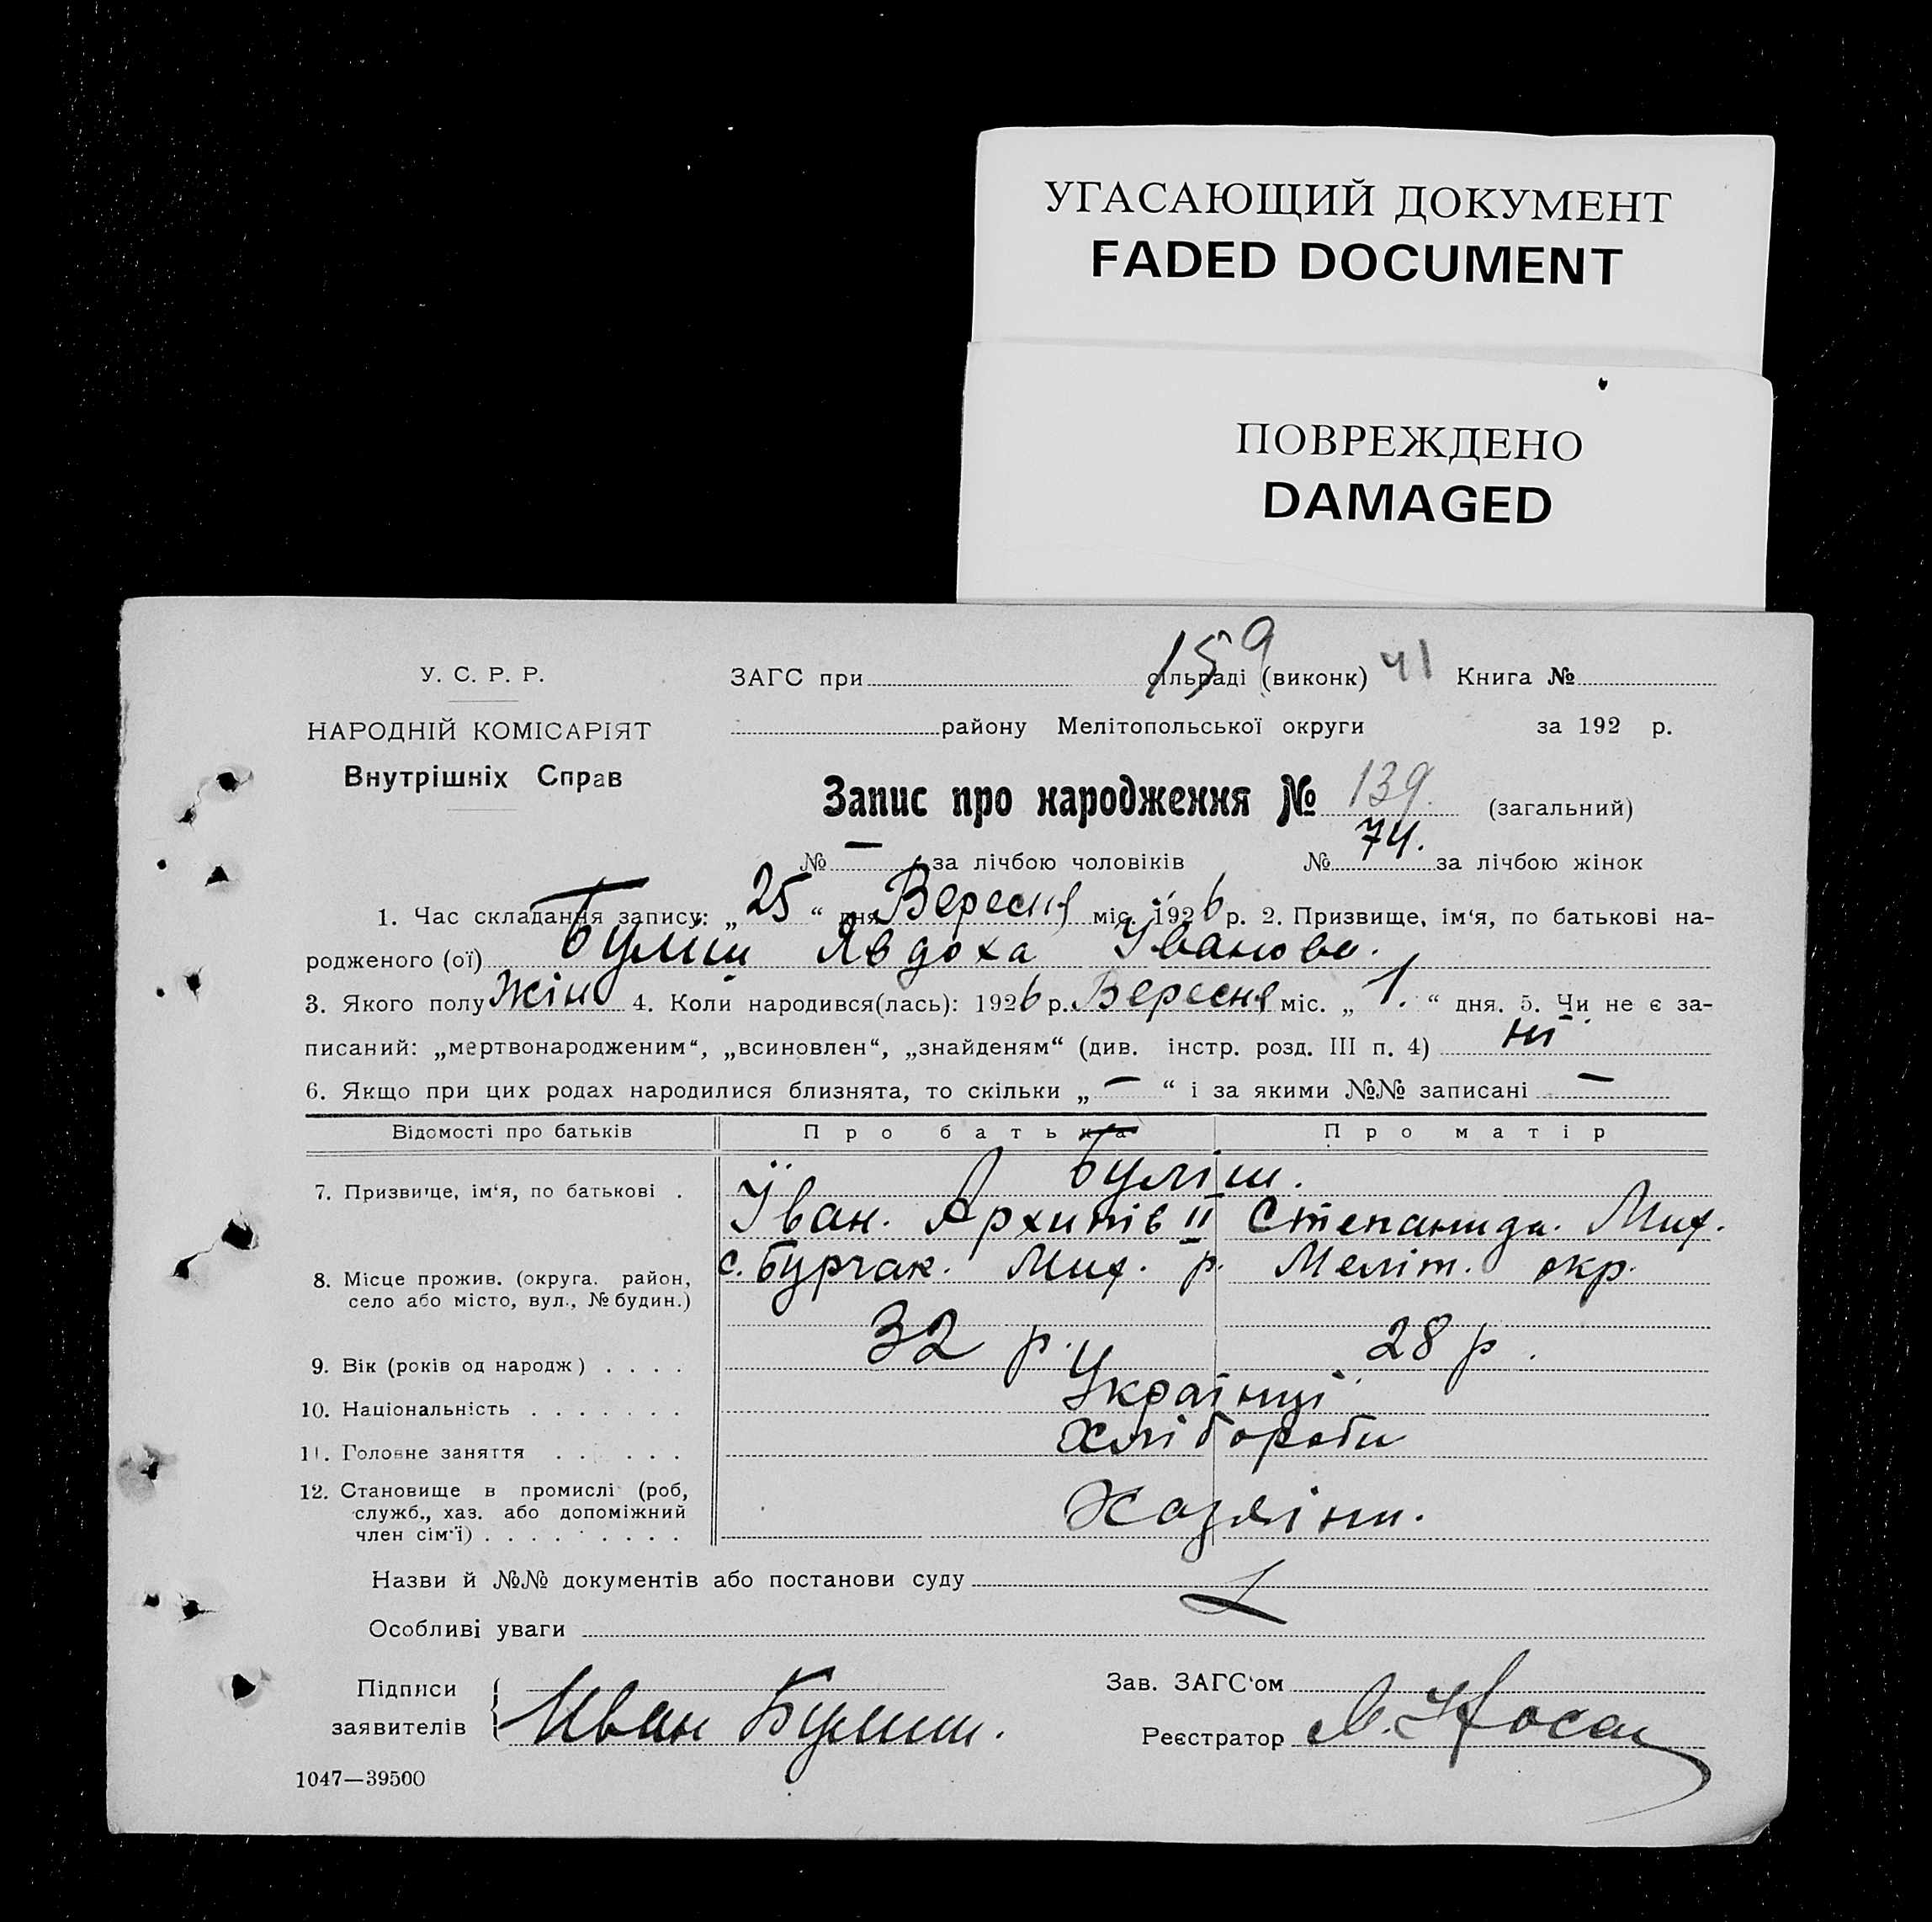 УГАСАЮЩИЙ ДОКУМЕНТ
FADED DOCUMENT
ПОВРЕЖДЕНО
DAMAGED
159 41
У. С. Р. Р. ЗАГС при сільраді (виконк) Книга №
НАРОДНІЙ КОМІСАРІЯТ району Мелітопольської округи за 192 р.
Внутрішніх Справ
Запис про народження № 139. (загальний)
№ — за лічбою чоловіків № 74. за лічбою жінок
1. Час складання запису: „25“ дня Вересня міс. 1926 р. 2. Призвище, ім'я, по батькові на-
родженого (ої) Буліш Явдоха Іванова.
3. Якого полу Жін 4. Коли народився(лась): 1926 р. Вересня міс. „1.“ дня. 5. Чи не є за-
писаний: „мертвонародженим“, „всиновлен“, „знайденям“ (див. інстр. розд. III п. 4) ні
6. Якщо при цих родах народилися близнята, то скільки „—“ і за якими №№ записані —
Відомості про батьків Про батька Про матір
Буліш.
7. Призвище, ім'я, по батькові . Іван. Архипів II Степанида. Мих.
с. Бурчак. Мих. р. Меліт. окр.
8. Місце прожив. (округа. район,
село або місто, вул., № будин.)
9. Вік (років од народж) . . . . 32 р. 28 р.
10. Національність . . . . . . . Українці
11. Головне заняття . . . . . . Хлібороби
12. Становище в промислі (роб,
служб., хаз. або допоміжний
член сім'ї) . . . . . . . . . Хазяіни.
Назви й №№ документів або постанови суду
Особливі уваги
Підписи Зав. ЗАГС'ом
заявителів Иван Булиш. Реєстратор
1047—39500